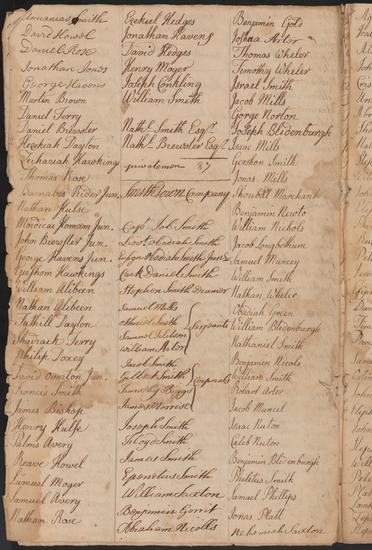 Smith
David Howel
Daniel Rose
Jonathan Jones
George Havens
Martin Brown
Daniel Terry
Daniel Brewster
Hezekiah Dayton
Zechariah Hawkings
Thomas Rose
Barnabas Rider Jun.
Nathan Hulse
Mordicai Homan Jun.
John Brewster Jun.
George Havens Jun.
Gershom Hawkings
William Albeen
Nathan Albeen
Tuthill Dayton
Shadrach Terry
Philip Foxey
David Overton Jun.
Francis Smith
James Bishop
Henry Hulse
Palms Avery
Reave Howel
Samuel Moger
Samuel Avery
Nathan Rose
Ezekiel Hedges
Jonathan Havens
David Hedges
Henry Moger
Joseph Conkling
William Smith
Nathl. Smith Esqr.
Nathl. Brewster Esqr.
privatemen 87
Smith Town Company
Capt. Job Smith
Lieut. Obadiah Smith
Obadiah Smith Junr.
Clark Daniel Smith
Stephen Smith Drumer
Samuel Mills
Smith
Samuel
William
Serjeants
Jacob Smith
Gilbert Smith
Timothy Biggs
James Morrise
Corporals
Joseph Smith
Floyd Smith
James Smith
Epenetus Smith
William Saxton
Benjemen Gorrit
Abraham Nicolls
Benjamin Gold
Joshua Arter
Thomas Wheler
Timothy Wheler
Israel Smith
Jacob Mills
George Norton
Joseph Blidenburgh
Isaac Mills
Gershon Smith
Jonas Mills
Shoubill Marchant
Benjamin
William Nichols
Jacob Longbothum
Samuel Muncey
William Smith
Nathan Wheler
Obidiah Green
William Blidenburgh
Nathaniel Smith
Benjemin Nicols
William Smith
Robart Arter
Jacob Muncel
Isaac Nuton
Caleb Nuton
Benjamin Blidenburgh
Philetus Smith
Samuel Phillips
Jonas Platt
Nehemiah Saxton